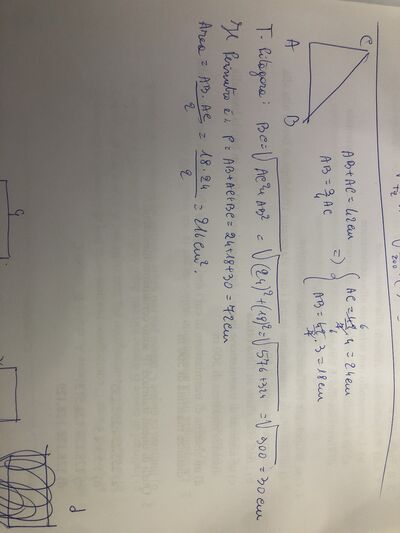 C
A
B
AB+AC=42cm
AB=3/4 AC
=>
{ AC=42/7·4=24cm
6
AB=42/7·3=18cm
6
T. Pitagora: BC=√AC²+AB² = √(24)²+(18)² = √576+324 = √900 = 30cm
Il Perimetro è: P=AB+AC+BC=24+18+30=72cm
Area = AB·AC/2 = 18·24/2 = 216cm².
d